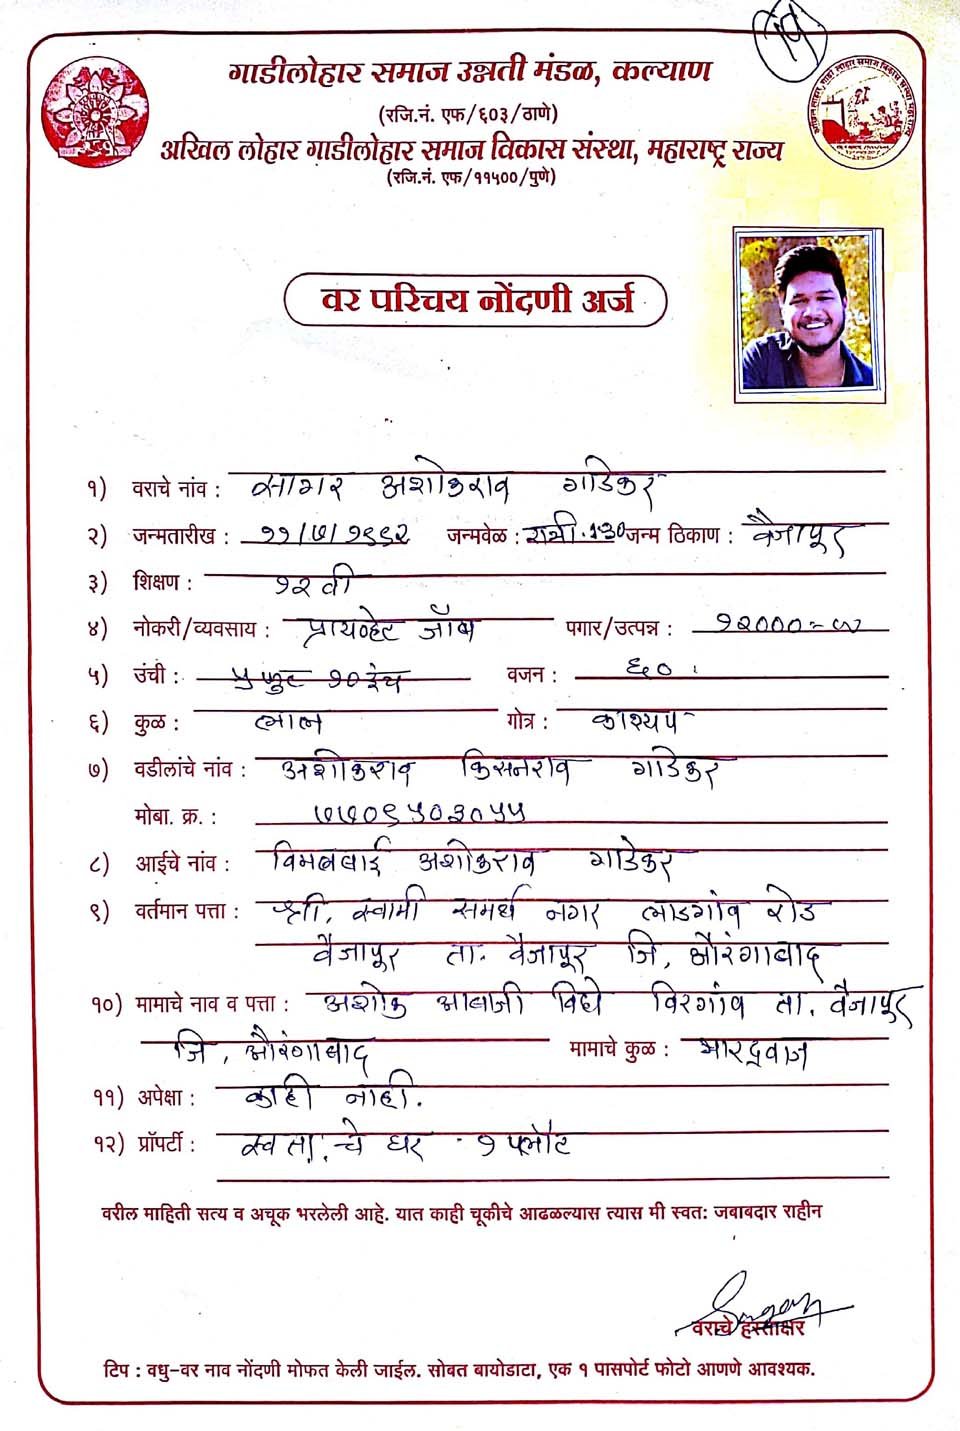 १५
गाडीलोहार समाज उन्नती मंडळ, कल्याण
(रजि.नं. एफ/६०३/ठाणे)
अखिल लोहार गाडीलोहार समाज विकास संस्था, महाराष्ट्र राज्य
(रजि.नं. एफ/११५००/पुणे)
वर परिचय नोंदणी अर्ज
१) वराचे नांव : सागर अशोकराव गाडेकर
२) जन्मतारीख : ११/७/१९९२ जन्मवेळ : रात्री.१.३० जन्म ठिकाण : वैजापूर
३) शिक्षण : १२ वी
४) नोकरी/व्यवसाय : प्रायव्हेट जॉब पगार/उत्पन्न : १२०००=००
५) उंची : ५ फुट १० इंच वजन : ६०
६) कुळ : गोत्र : काश्यप
७) वडीलांचे नांव : अशोकराव किसनराव गाडेकर
मोबा. क्र. : ७७०९५०३०५५
८) आईचे नांव : विमलबाई अशोकराव गाडेकर
९) वर्तमान पत्ता : श्री. स्वामी समर्थ नगर लाडगांव रोड
वैजापूर ता. वैजापूर जि. औरंगाबाद
१०) मामाचे नाव व पत्ता : अशोक बाबाजी विधे विरगांव ता. वैजापुर
जि. औरंगाबाद मामाचे कुळ : भारद्वाज
११) अपेक्षा : काही नाही.
१२) प्रॉपर्टी : स्वता:चे घर - १ प्लॉट
वरील माहिती सत्य व अचूक भरलेली आहे. यात काही चूकीचे आढळल्यास त्यास मी स्वत: जबाबदार राहीन
वराचे हस्ताक्षर
टिप : वधु-वर नाव नोंदणी मोफत केली जाईल. सोबत बायोडाटा, एक १ पासपोर्ट फोटो आणणे आवश्यक.